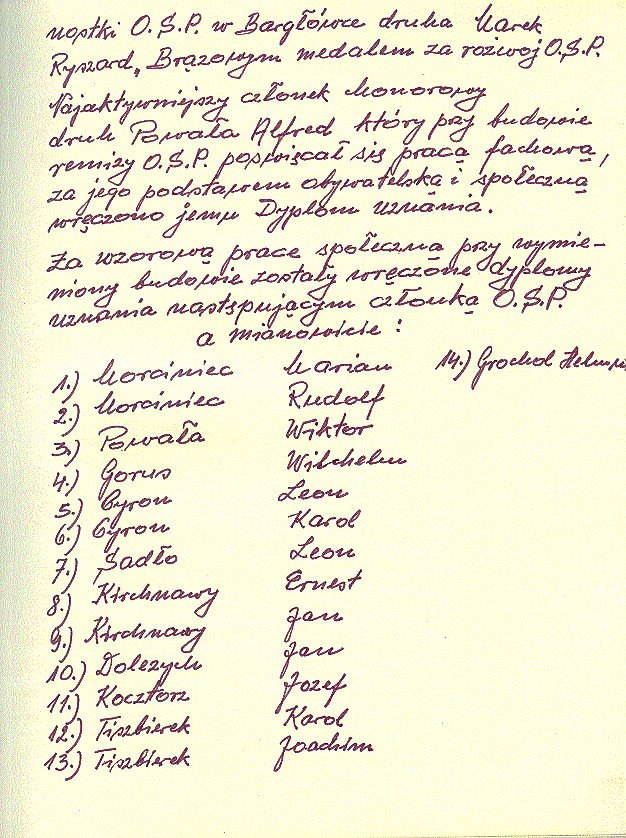 nostki O.S.P. w Bargłówce druha Marek
Ryszard „Brązowym medalem za rozwoj O.S.P.
Najaktywniejszy członek honorowy
druh Powała Alfred który przy budowie
remizy O.S.P. poswięcał się pracą fachową,
za jego podstawem obywatelską i społeczną
wręczono jemu Dyplom uznania.
Za wzorową prace społeczną przy wymie-
niony budowie zostały wręczone dyplomy
uznania następującym członką O.S.P.
a mianowicie :
1.) Morciniec Marian 14.) Grochol
2.) Morciniec Rudolf
3.) Powała Wiktor
4.) Gorus Wilhelm
5.) Cyron Leon
6.) Cyron Karol
7.) Sadło Leon
8.) Kirchnawy Ernest
9.) Kirchnawy Jan
10.) Dolezych Jan
11.) Kocztorz Jozef
12.) Tiszbierek Karol
13.) Tiszbierek Joachim